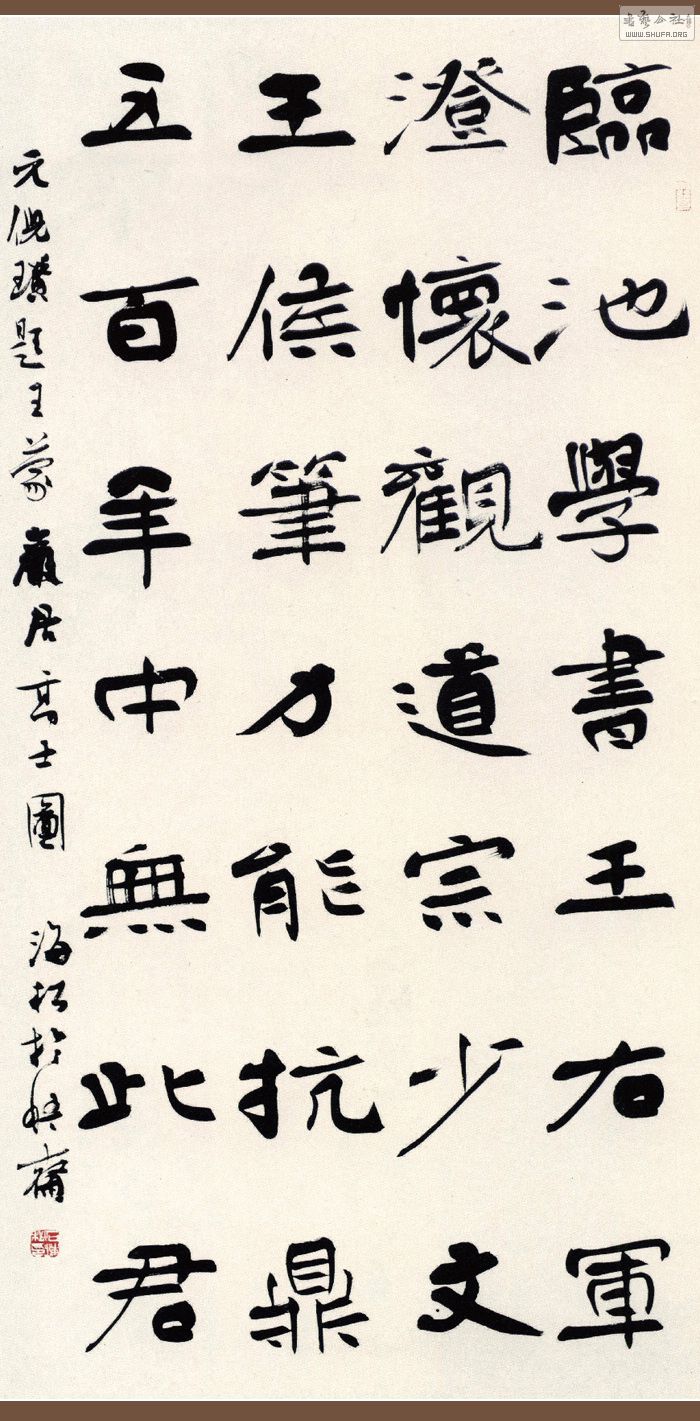 臨池學書王右軍
澄懷觀道宗少文
王侯筆力能扛鼎
五百年中無此君
元倪瓚題王蒙巖居高士圖 海松於悟齋
书艺公社
WWW.SHUFA.ORG